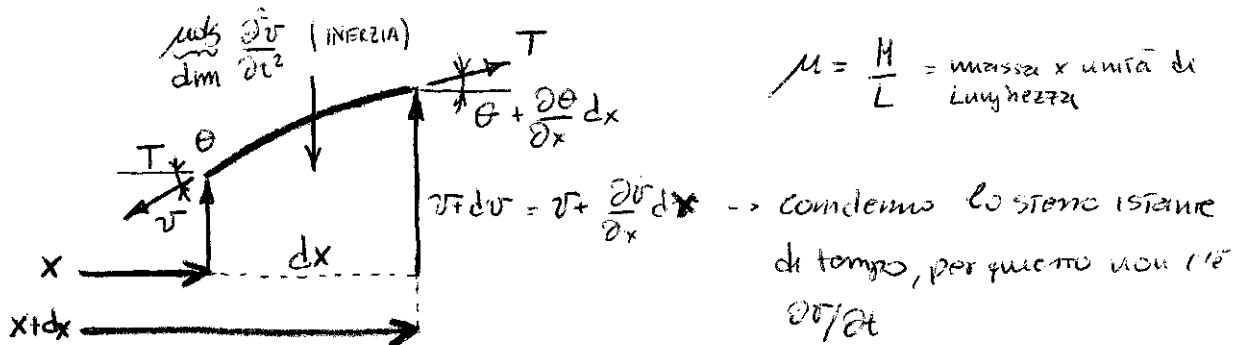 μds ∂²v/∂t² (INERZIA)
dm
T
μ = M/L = massa x unità di lunghezza
θ + ∂θ/∂x dx
T θ
v
v+dv = v + ∂v/∂x dx -> considero lo stesso istante
di tempo, per questo non c'è
∂v/∂t
x
dx
x+dx